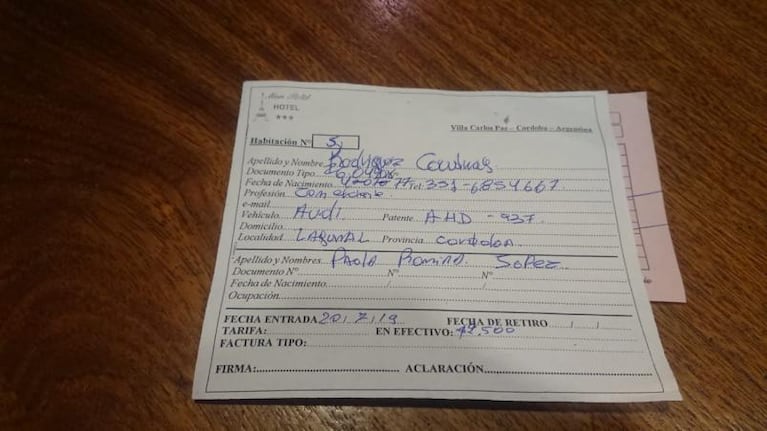 HOTEL
Villa Carlos Paz – Cordoba – Argentina
Habitación Nº 5
Apellido y Nombre Rodriguez
Documento Tipo
Fecha de Nacimiento Tel: 351-6854667
Profesión Comerciante
e-mail
Vehículo AUDI Patente AHD - 937
Domicilio
Localidad Provincia Cordoba
Apellido y Nombres Paola Romina Lopez
Documento Nº Nº Nº
Fecha de Nacimiento / /
Ocupación:
FECHA ENTRADA 20/7/19 FECHA DE RETIRO / /
TARIFA: EN EFECTIVO: $2.500
FACTURA TIPO:
FIRMA: ACLARACIÓN